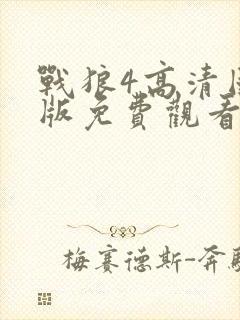 戰狼4高清
版免費觀看
梅賽德斯-奔